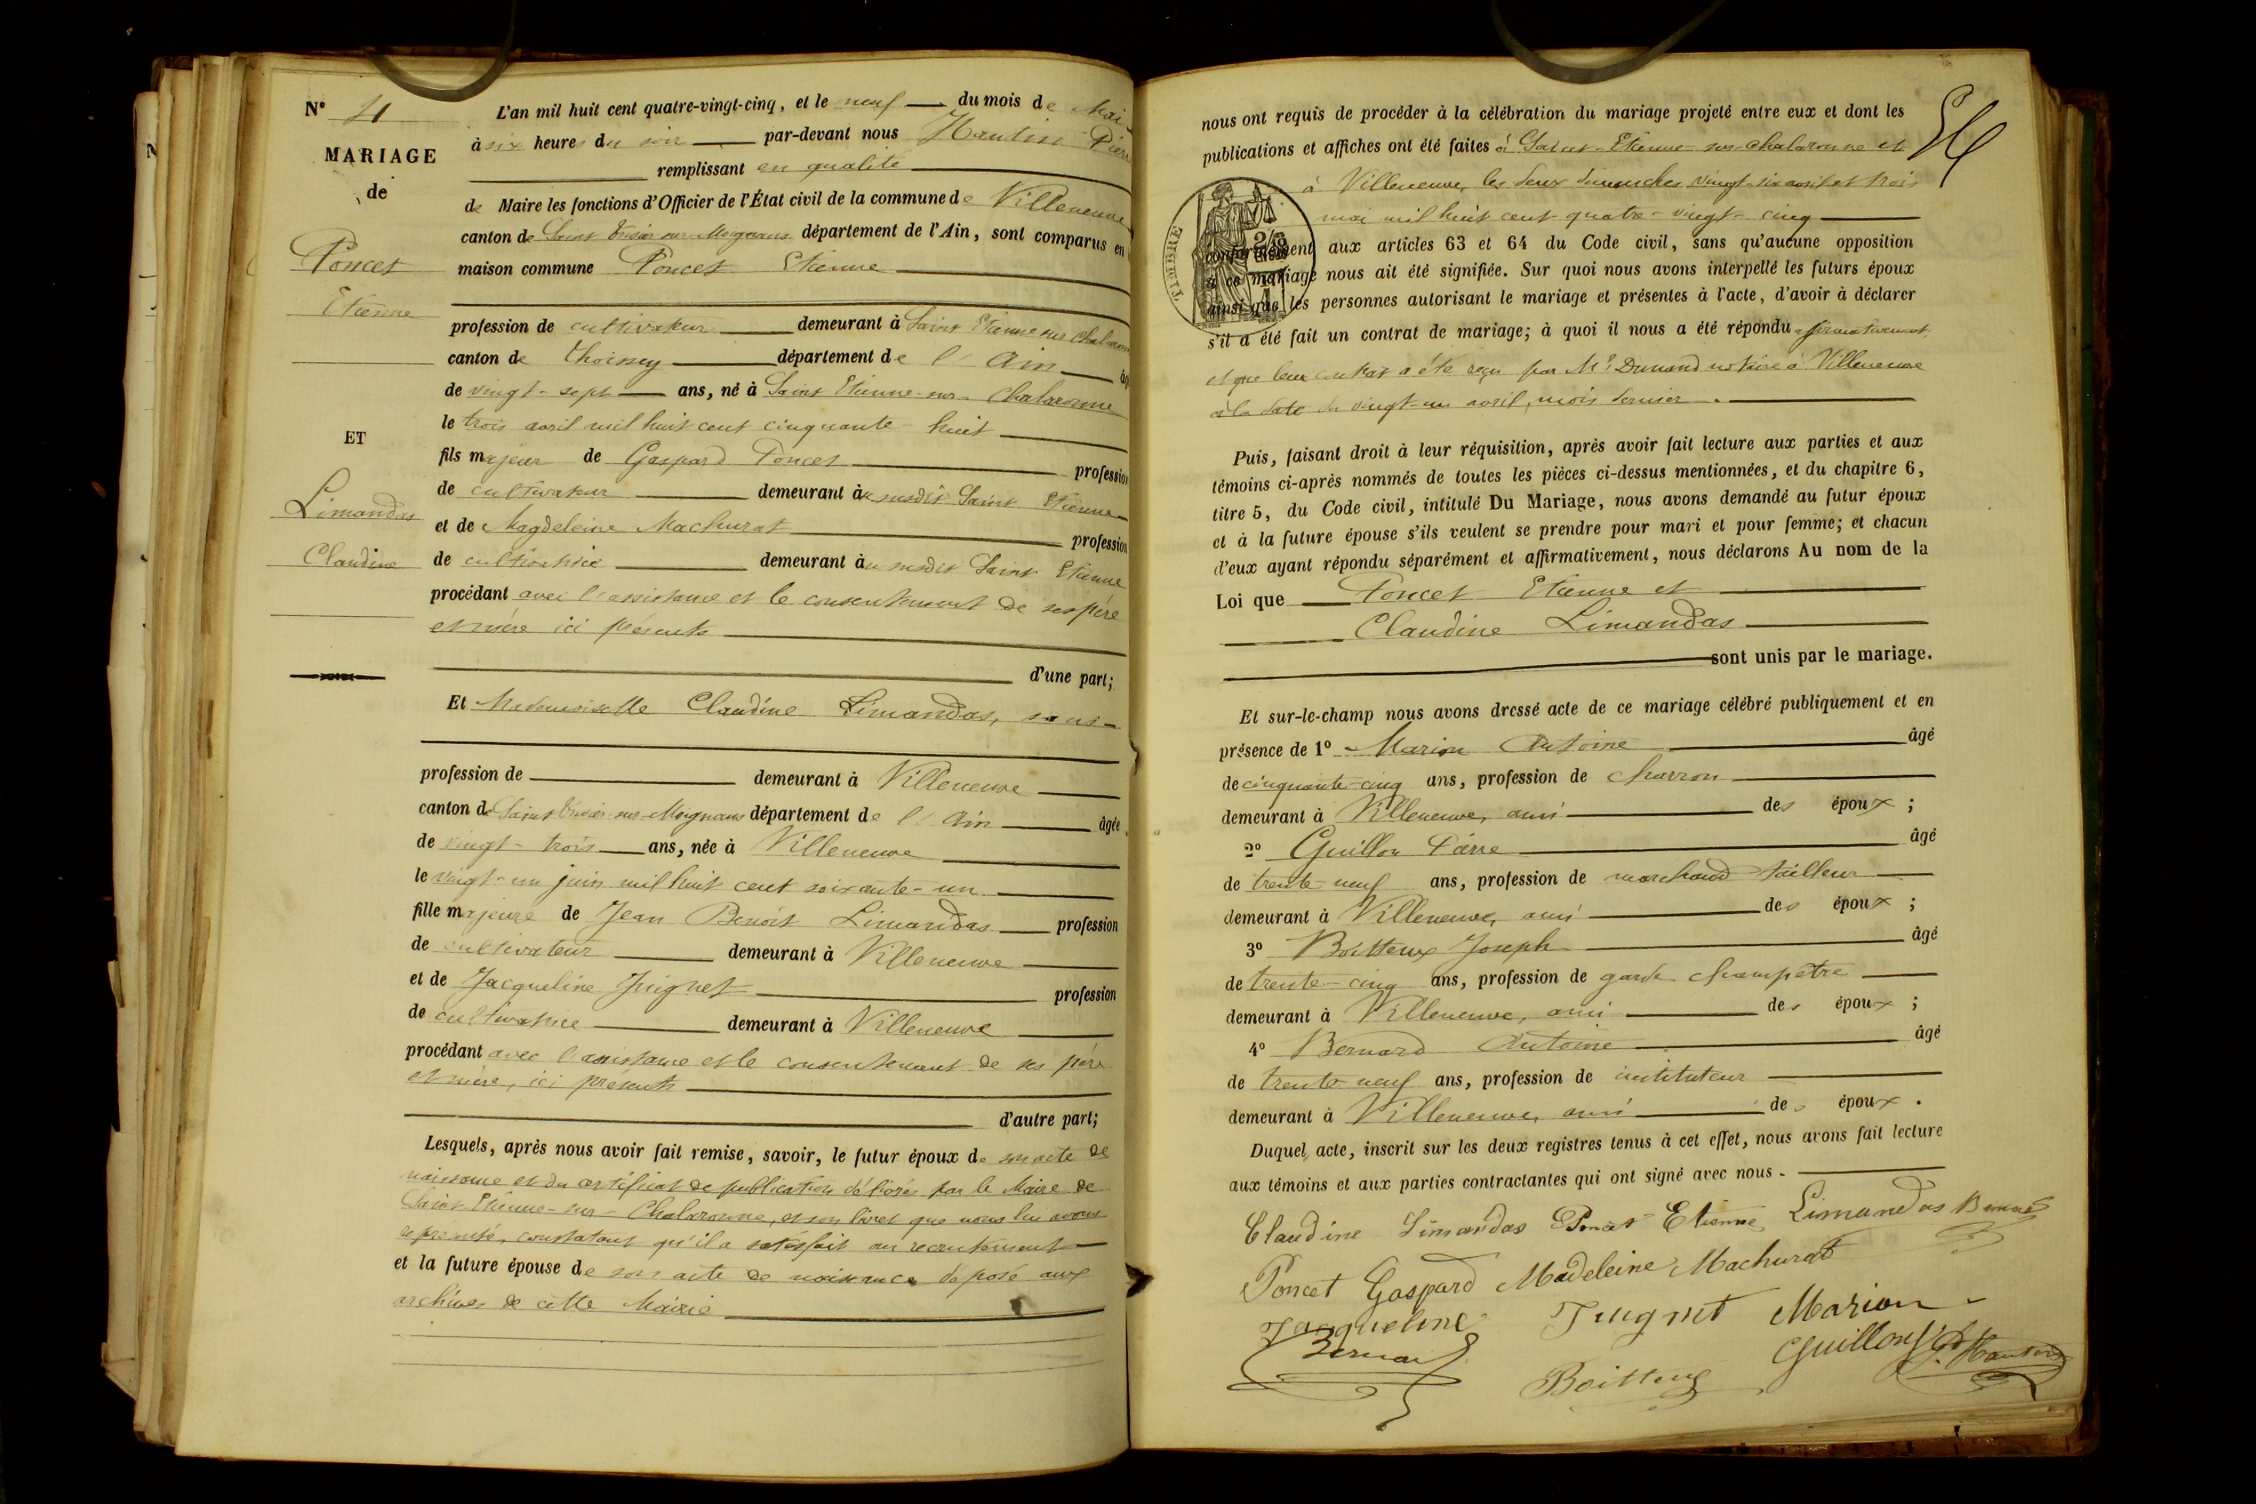 N° 4
MARIAGE
de
Poncet
Etienne
ET
Limandas
Claudine
L'an mil huit cent quatre-vingt-cinq, et le neuf du mois de Mai
à six heures du soir par-devant nous Hautin Pierre
remplissant en qualité
de Maire les fonctions d'Officier de l'État civil de la commune de Villeneuve
canton de Saint Trivier sur Moignans département de l'Ain, sont comparus en
maison commune Poncet Etienne
profession de cultivateur demeurant à Saint Etienne sur Chalaronne
canton de Thoissey département de l'Ain âgé
de vingt-sept ans, né à Saint Etienne-sur-Chalaronne
le trois avril mil huit cent cinquante-huit
fils majeur de Gaspard Poncet profession
de cultivateur demeurant au susdit Saint Etienne
et de Magdeleine Machurat profession
de cultivatrice demeurant au susdit Saint Etienne
procédant avec l'assistance et le consentement de ses père
et mère ici présents
d'une part;
Et Mademoiselle Claudine Limandas, sans
profession de demeurant à Villeneuve
canton de Saint Trivier sur Moignans département de l'Ain âgée
de vingt-trois ans, née à Villeneuve
le vingt-un juin mil huit cent soixante-un
fille majeure de Jean Benoit Limandas profession
de cultivateur demeurant à Villeneuve
et de Jacqueline Juignet profession
de cultivatrice demeurant à Villeneuve
procédant avec l'assistance et le consentement de ses père
et mère, ici présents
d'autre part;
Lesquels, après nous avoir fait remise, savoir, le futur époux de son acte de
naissance et du certificat de publication délivrés par le Maire de
Saint-Etienne-sur-Chalaronne, et son livret que nous lui avons
représenté, constatant qu'il a satisfait au recrutement
et la future épouse de son acte de naissance déposé aux
archives de cette Mairie
nous ont requis de procéder à la célébration du mariage projeté entre eux et dont les
publications et affiches ont été faites à Saint-Etienne-sur-Chalaronne et
à Villeneuve, les deux dimanches vingt-six avril et trois
mai mil huit cent quatre-vingt-cinq
TIMBRE
conformément aux articles 63 et 64 du Code civil, sans qu'aucune opposition
à ce mariage nous ait été signifiée. Sur quoi nous avons interpellé les futurs époux
ainsi que les personnes autorisant le mariage et présentes à l'acte, d'avoir à déclarer
s'il a été fait un contrat de mariage; à quoi il nous a été répondu affirmativement
et que leur contrat a été reçu par Me Dunand notaire à Villeneuve
à la date du vingt-un avril, mois dernier.
Puis, faisant droit à leur réquisition, après avoir fait lecture aux parties et aux
témoins ci-après nommés de toutes les pièces ci-dessus mentionnées, et du chapitre 6,
titre 5, du Code civil, intitulé Du Mariage, nous avons demandé au futur époux
et à la future épouse s'ils veulent se prendre pour mari et pour femme; et chacun
d'eux ayant répondu séparément et affirmativement, nous déclarons Au nom de la
Loi que Poncet Etienne et
Claudine Limandas
sont unis par le mariage.
Et sur-le-champ nous avons dressé acte de ce mariage célébré publiquement et en
présence de 1° Marion Antoine âgé
de cinquante-cinq ans, profession de charron
demeurant à Villeneuve, ami des époux;
2° Guillon Pierre âgé
de trente-neuf ans, profession de marchand tailleur
demeurant à Villeneuve, ami des époux;
3° Boitteux Joseph âgé
de trente-cinq ans, profession de garde champêtre
demeurant à Villeneuve, ami des époux;
4° Bernard Antoine âgé
de trente-neuf ans, profession de instituteur
demeurant à Villeneuve, ami des époux.
Duquel acte, inscrit sur les deux registres tenus à cet effet, nous avons fait lecture
aux témoins et aux parties contractantes qui ont signé avec nous.
Claudine Limandas Poncet Etienne Limandas Benoit
Poncet Gaspard Madeleine Machurat
Jacqueline Juignet Marion
Bernard Boitteux Guillon P. Hautin